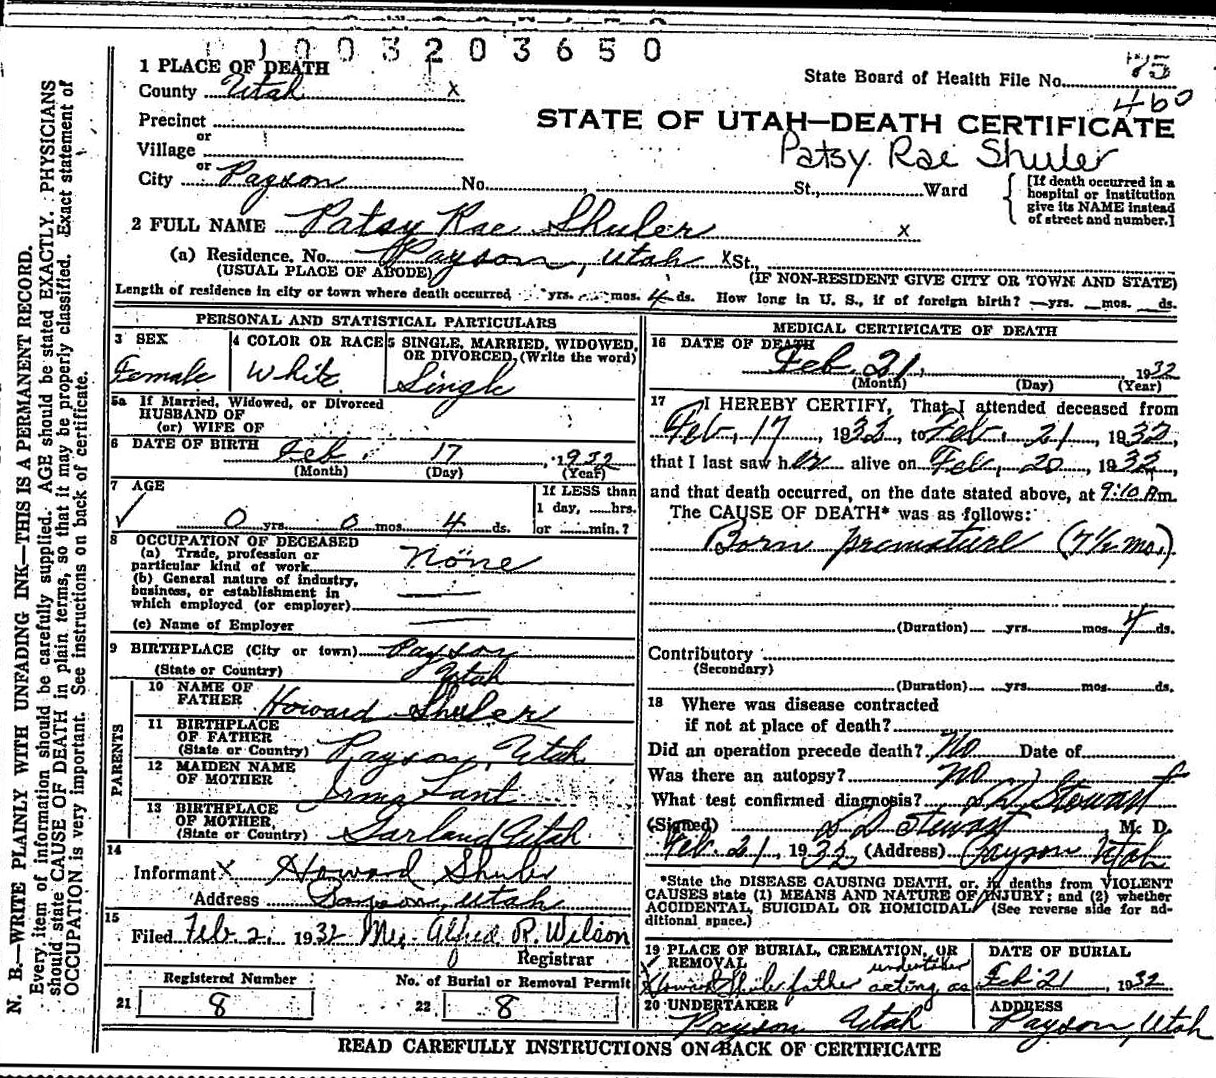 1003203650
1 PLACE OF DEATH
State Board of Health File No. 75
County Utah X
460
Precinct
STATE OF UTAH—DEATH CERTIFICATE
or
Village
Patsy Rae Shuler
or
City Payson No. St., Ward
[If death occurred in a
hospital or institution
give its NAME instead
of street and number.]
2 FULL NAME Patsy Rae Shuler X
(a) Residence. No. Payson, Utah X St.,
(USUAL PLACE OF ABODE) (IF NON-RESIDENT GIVE CITY OR TOWN AND STATE)
Length of residence in city or town where death occurred yrs. mos. 4 ds. How long in U. S., if of foreign birth? —yrs. mos. ds.
PERSONAL AND STATISTICAL PARTICULARS
3 SEX
Female
4 COLOR OR RACE
White
5 SINGLE, MARRIED, WIDOWED,
OR DIVORCED, (Write the word)
Single
5a If Married, Widowed, or Divorced
HUSBAND OF
(or) WIFE OF
6 DATE OF BIRTH Feb. 17, 1932
(Month) (Day) (Year)
7 AGE
If LESS than
1 day, hrs.
0 yrs. 0 mos. 4 ds. or min.?
8 OCCUPATION OF DECEASED
(a) Trade, profession or
particular kind of work None
(b) General nature of industry,
business, or establishment in
which employed (or employer)
(c) Name of Employer
9 BIRTHPLACE (City or town) Payson
(State or Country) Utah
PARENTS
10 NAME OF
FATHER Howard Shuler
11 BIRTHPLACE
OF FATHER
(State or Country) Payson, Utah
12 MAIDEN NAME
OF MOTHER Irma Tant
13 BIRTHPLACE
OF MOTHER,
(State or Country) Garland Utah
14
Informant X Howard Shuler
Address Payson, Utah
15
Filed Feb 2, 1932 Mrs Alfred R. Wilson
Registrar
Registered Number
21 8
No. of Burial or Removal Permit
22 8
MEDICAL CERTIFICATE OF DEATH
16 DATE OF DEATH
Feb. 21, 1932
(Month) (Day) (Year)
17 I HEREBY CERTIFY, That I attended deceased from
Feb, 17, 1932, to Feb. 21, 1932,
that I last saw her alive on Feb, 20, 1932,
and that death occurred, on the date stated above, at 9:10 A m.
The CAUSE OF DEATH* was as follows:
Born premature (7½ mo.)
(Duration) yrs. mos. 4 ds.
Contributory
(Secondary)
(Duration) yrs. mos. ds.
18 Where was disease contracted
if not at place of death?
Did an operation precede death? No Date of
Was there an autopsy? no
What test confirmed diagnosis? Stewart
(Signed) L D Stewart M. D.
Feb. 21, 1932, (Address) Payson Utah
*State the DISEASE CAUSING DEATH, or, in deaths from VIOLENT
CAUSES state (1) MEANS AND NATURE OF INJURY; and (2) whether
ACCIDENTAL, SUICIDAL OR HOMICIDAL. (See reverse side for ad-
ditional space.)
19 PLACE OF BURIAL, CREMATION, OR
REMOVAL
undertaker
Howard Shuler father acting as
DATE OF BURIAL
Feb 21, 1932
20 UNDERTAKER
Payson Utah
ADDRESS
Payson, Utah
READ CAREFULLY INSTRUCTIONS ON BACK OF CERTIFICATE
N. B.—WRITE PLAINLY WITH UNFADING INK—THIS IS A PERMANENT RECORD.
Every item of information should be carefully supplied. AGE should be stated EXACTLY. PHYSICIANS
should state CAUSE OF DEATH in plain terms, so that it may be properly classified. Exact statement of
OCCUPATION is very important. See instructions on back of certificate.